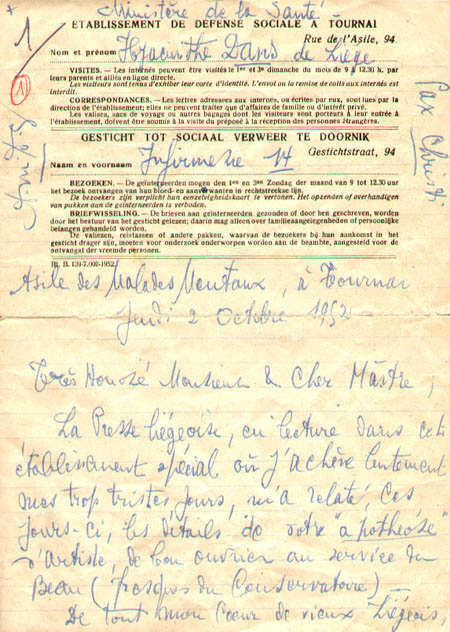 Ministère de la Santé
ETABLISSEMENT DE DÉFENSE SOCIALE A TOURNAI
Rue de l'Asile, 94
1/
Nom et prénom Hyacinthe Dans de Liège
VISITES. — Les internés peuvent être visités le 1er et 3e dimanche du mois de 9 à 12.30 h, par
leurs parents et alliés en ligne directe.
Les visiteurs sont tenus d'exhiber leur carte d'identité. L'envoi ou la remise de colis aux internés est
interdit.
CORRESPONDANCES. — Les lettres adressées aux internés, ou écrites par eux, sont lues par la
direction de l'établissement; elles ne peuvent traiter que d'affaires de famille ou d'intérêt privé.
Les valises, sacs de voyage ou autres bagages dont les visiteurs sont porteurs à leur entrée à
l'établissement, doivent être soumis à la visite du préposé à la réception des personnes étrangères.
Pax Christi
1
GESTICHT TOT SOCIAAL VERWEER TE DOORNIK
Gestichtstraat, 94
Naam en voornaam Infirmerie 14
BEZOEKEN. — De geïnterneerden mogen den 1en en 3en Zondag der maand van 9 tot 12.30 uur
het bezoek ontvangen van hun bloed- en aanverwanten in rechtstreekse lijn.
De bezoekers zijn verplicht hun eenzelvigheidskaart te vertonen. Het opzenden of overhandigen
van pakken aan de geïnterneerden is verboden.
BRIEFWISSELING. — De brieven aan geïnterneerden gezonden of door hen geschreven, worden
door het bestuur van het gesticht gelezen; daarin mag alleen over familieaangelegenheden of persoonlijke
belangen gehandeld worden.
De valiezen, reistassen of andere pakken, waarvan de bezoekers bij hun aankomst in het
gesticht drager zijn, moeten voor onderzoek onderworpen worden aan de beambte, aangesteld voor de
ontvangst der vreemde personen.
Asile des Malades Mentaux, à Tournai
Jeudi 2 Octobre 1952
Très Honoré Monsieur & Cher Maître,
La Presse liégeoise, en lecture dans cet
établissement spécial où j'achève lentement
mes trop tristes jours, m'a relaté, ces
jours-ci, les détails de votre "apothéose"
d'artiste, de bon ouvrier au service du
Beau (fresques du Conservatoire) —
De tout mon coeur de vieux Liégeois,